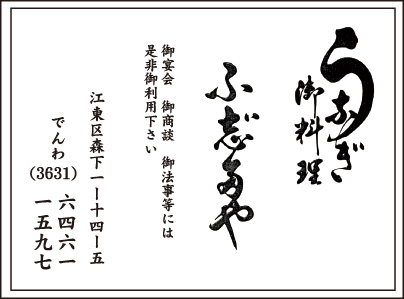 うなぎ
御料理
ふじ多や
御宴会 御商談 御法事等には
是非御利用下さい
江東区森下一ー十四ー五
でんわ(3631)六四六一
一五九七